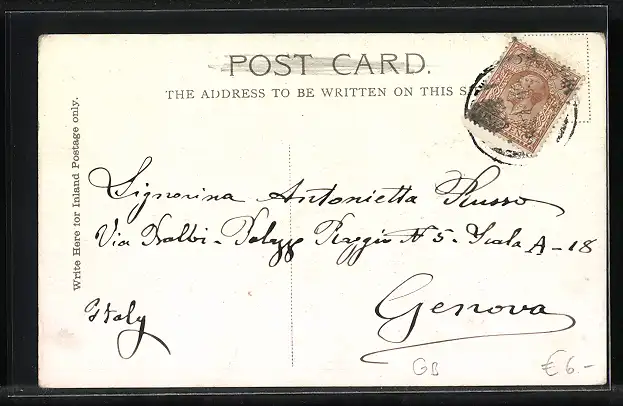 POST CARD.
THE ADDRESS TO BE WRITTEN ON THIS S
Write Here for Inland Postage only.
Signorina Antonietta Russo
Via Balbi - Palazzo Raggio N 5 - Scala A - 18
Genova
Italy
GB
€ 6.-